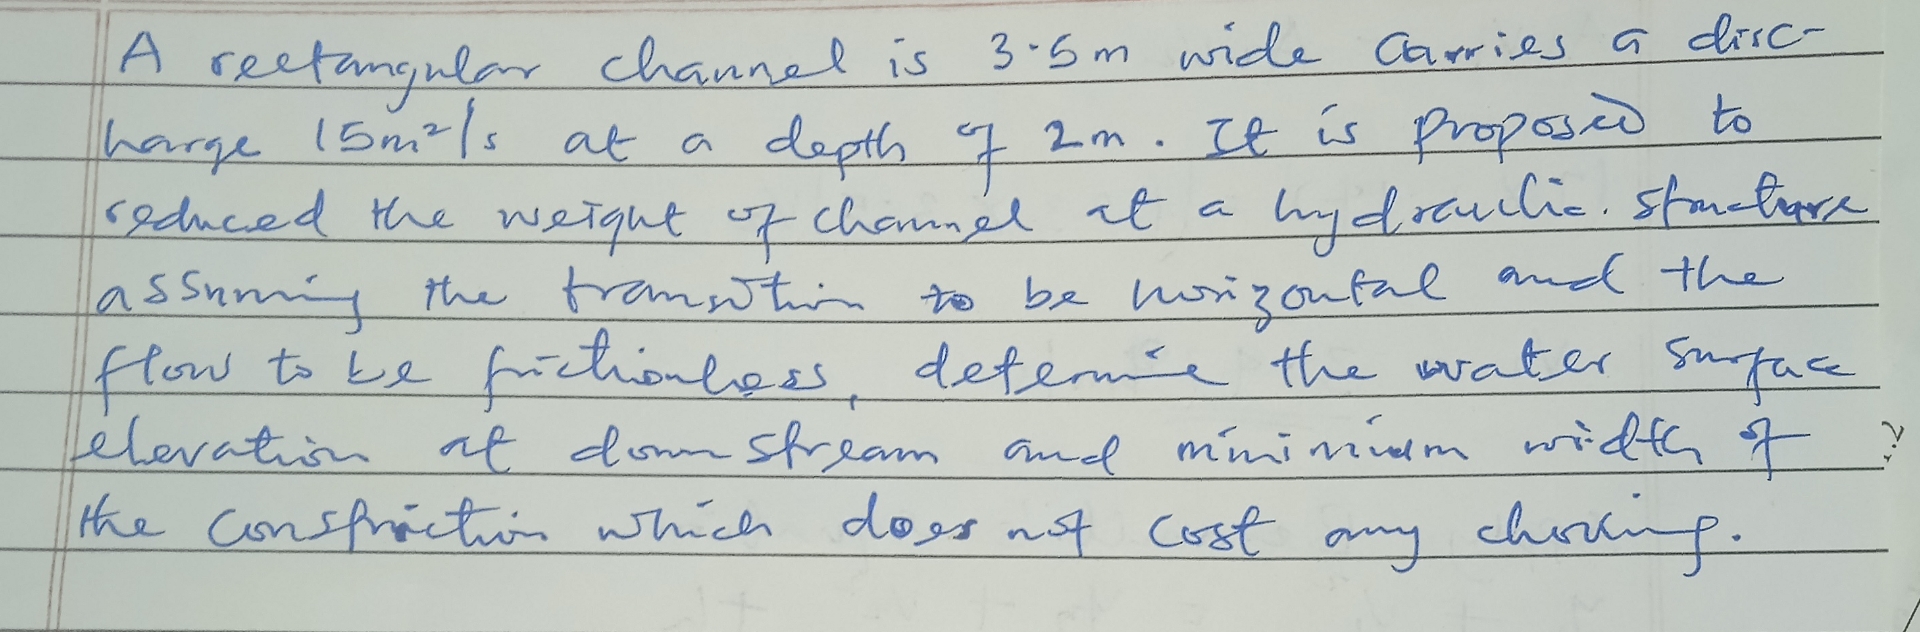 A rectangular channel is 3.5m wide carries a disc-
harge 15m²/s at a depth of 2m. It is proposed to
reduced the weight of channel at a hydraulic. structure
assuming the transition to be horizontal and the
flow to be frictionless, determine the water surface
elevation at down stream and minimum width of
the constriction which does not cost any choking.